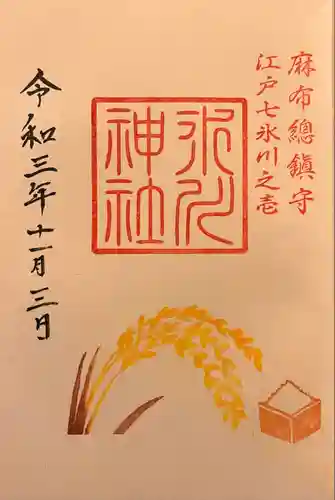 麻布總鎮守
江戸七氷川之壱
氷川
神社
令和三年十一月三日